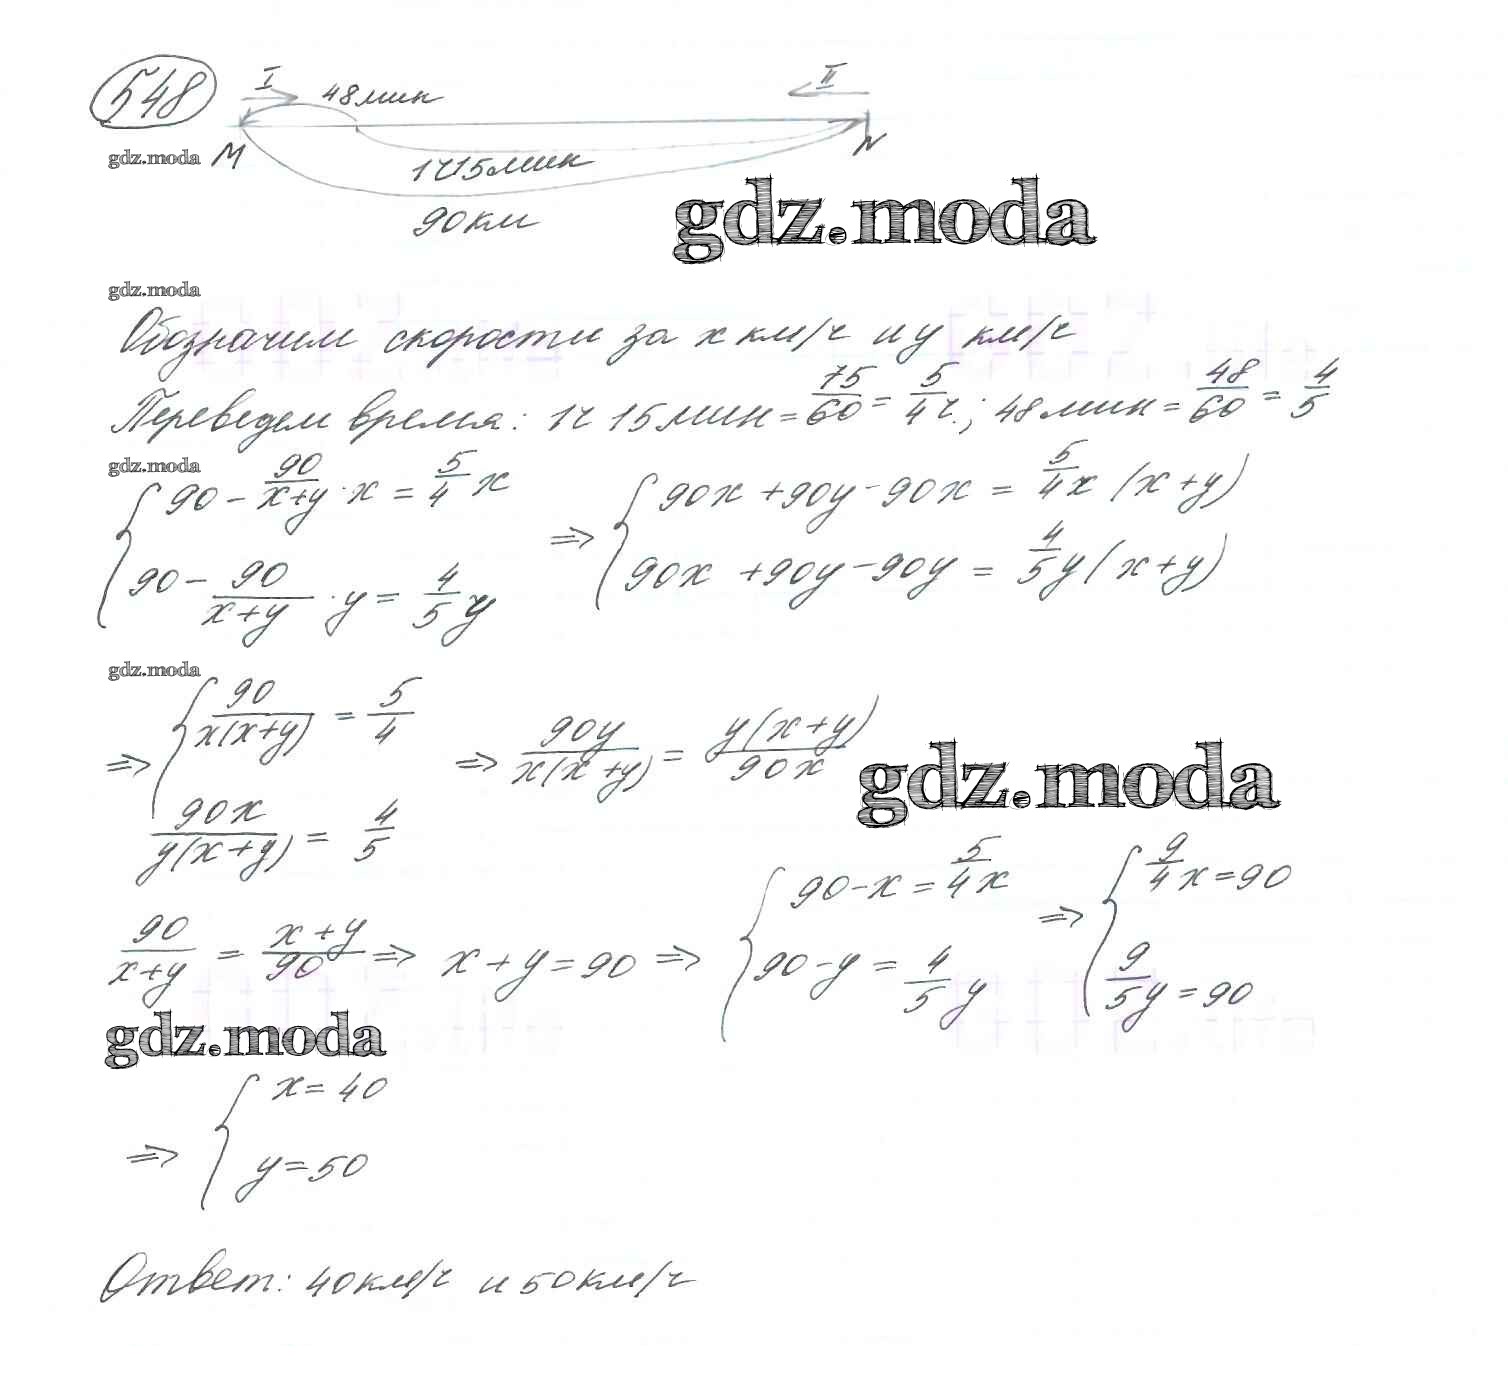 548
I 48 мин II
gdz.moda M 1ч 15 мин N
90 км
gdz.moda
gdz.moda
Обозначим скорости за x км/ч и y км/ч
Переведем время: 1ч 15 мин = 75/60 = 5/4 ч.; 48 мин = 48/60 = 4/5
gdz.moda
{ 90 - 90/(x+y) · x = 5/4 x ⇒ { 90x + 90y - 90x = 5/4 x (x+y)
90 - 90/(x+y) · y = 4/5 y 90x + 90y - 90y = 4/5 y (x+y)
gdz.moda
⇒ { 90/(x(x+y)) = 5/4 ⇒ 90y/(x(x+y)) = y(x+y)/(90x)
90x/(y(x+y)) = 4/5
gdz.moda
90/(x+y) = (x+y)/90 ⇒ x + y = 90 ⇒ { 90 - x = 5/4 x ⇒ { 9/4 x = 90
90 - y = 4/5 y 9/5 y = 90
gdz.moda
⇒ { x = 40
y = 50
Ответ: 40 км/ч и 50 км/ч